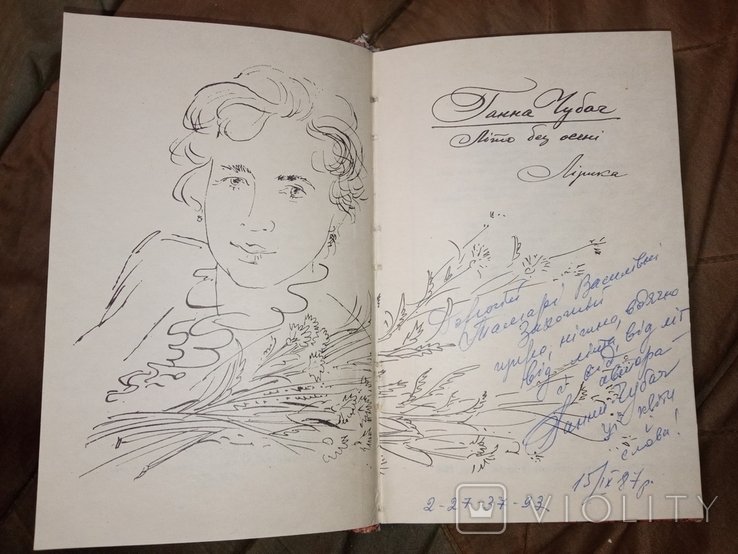 Ганна Чубач
Літо без осені
Лірика
Дорогій
Тамарі Василівні
щиро, ніжно, вдячно
від літа,
від літ
автора —
Ганни Чубач
у квіти
слова!
15/IX 87 р.
2-27-37-93.
VIOLITY